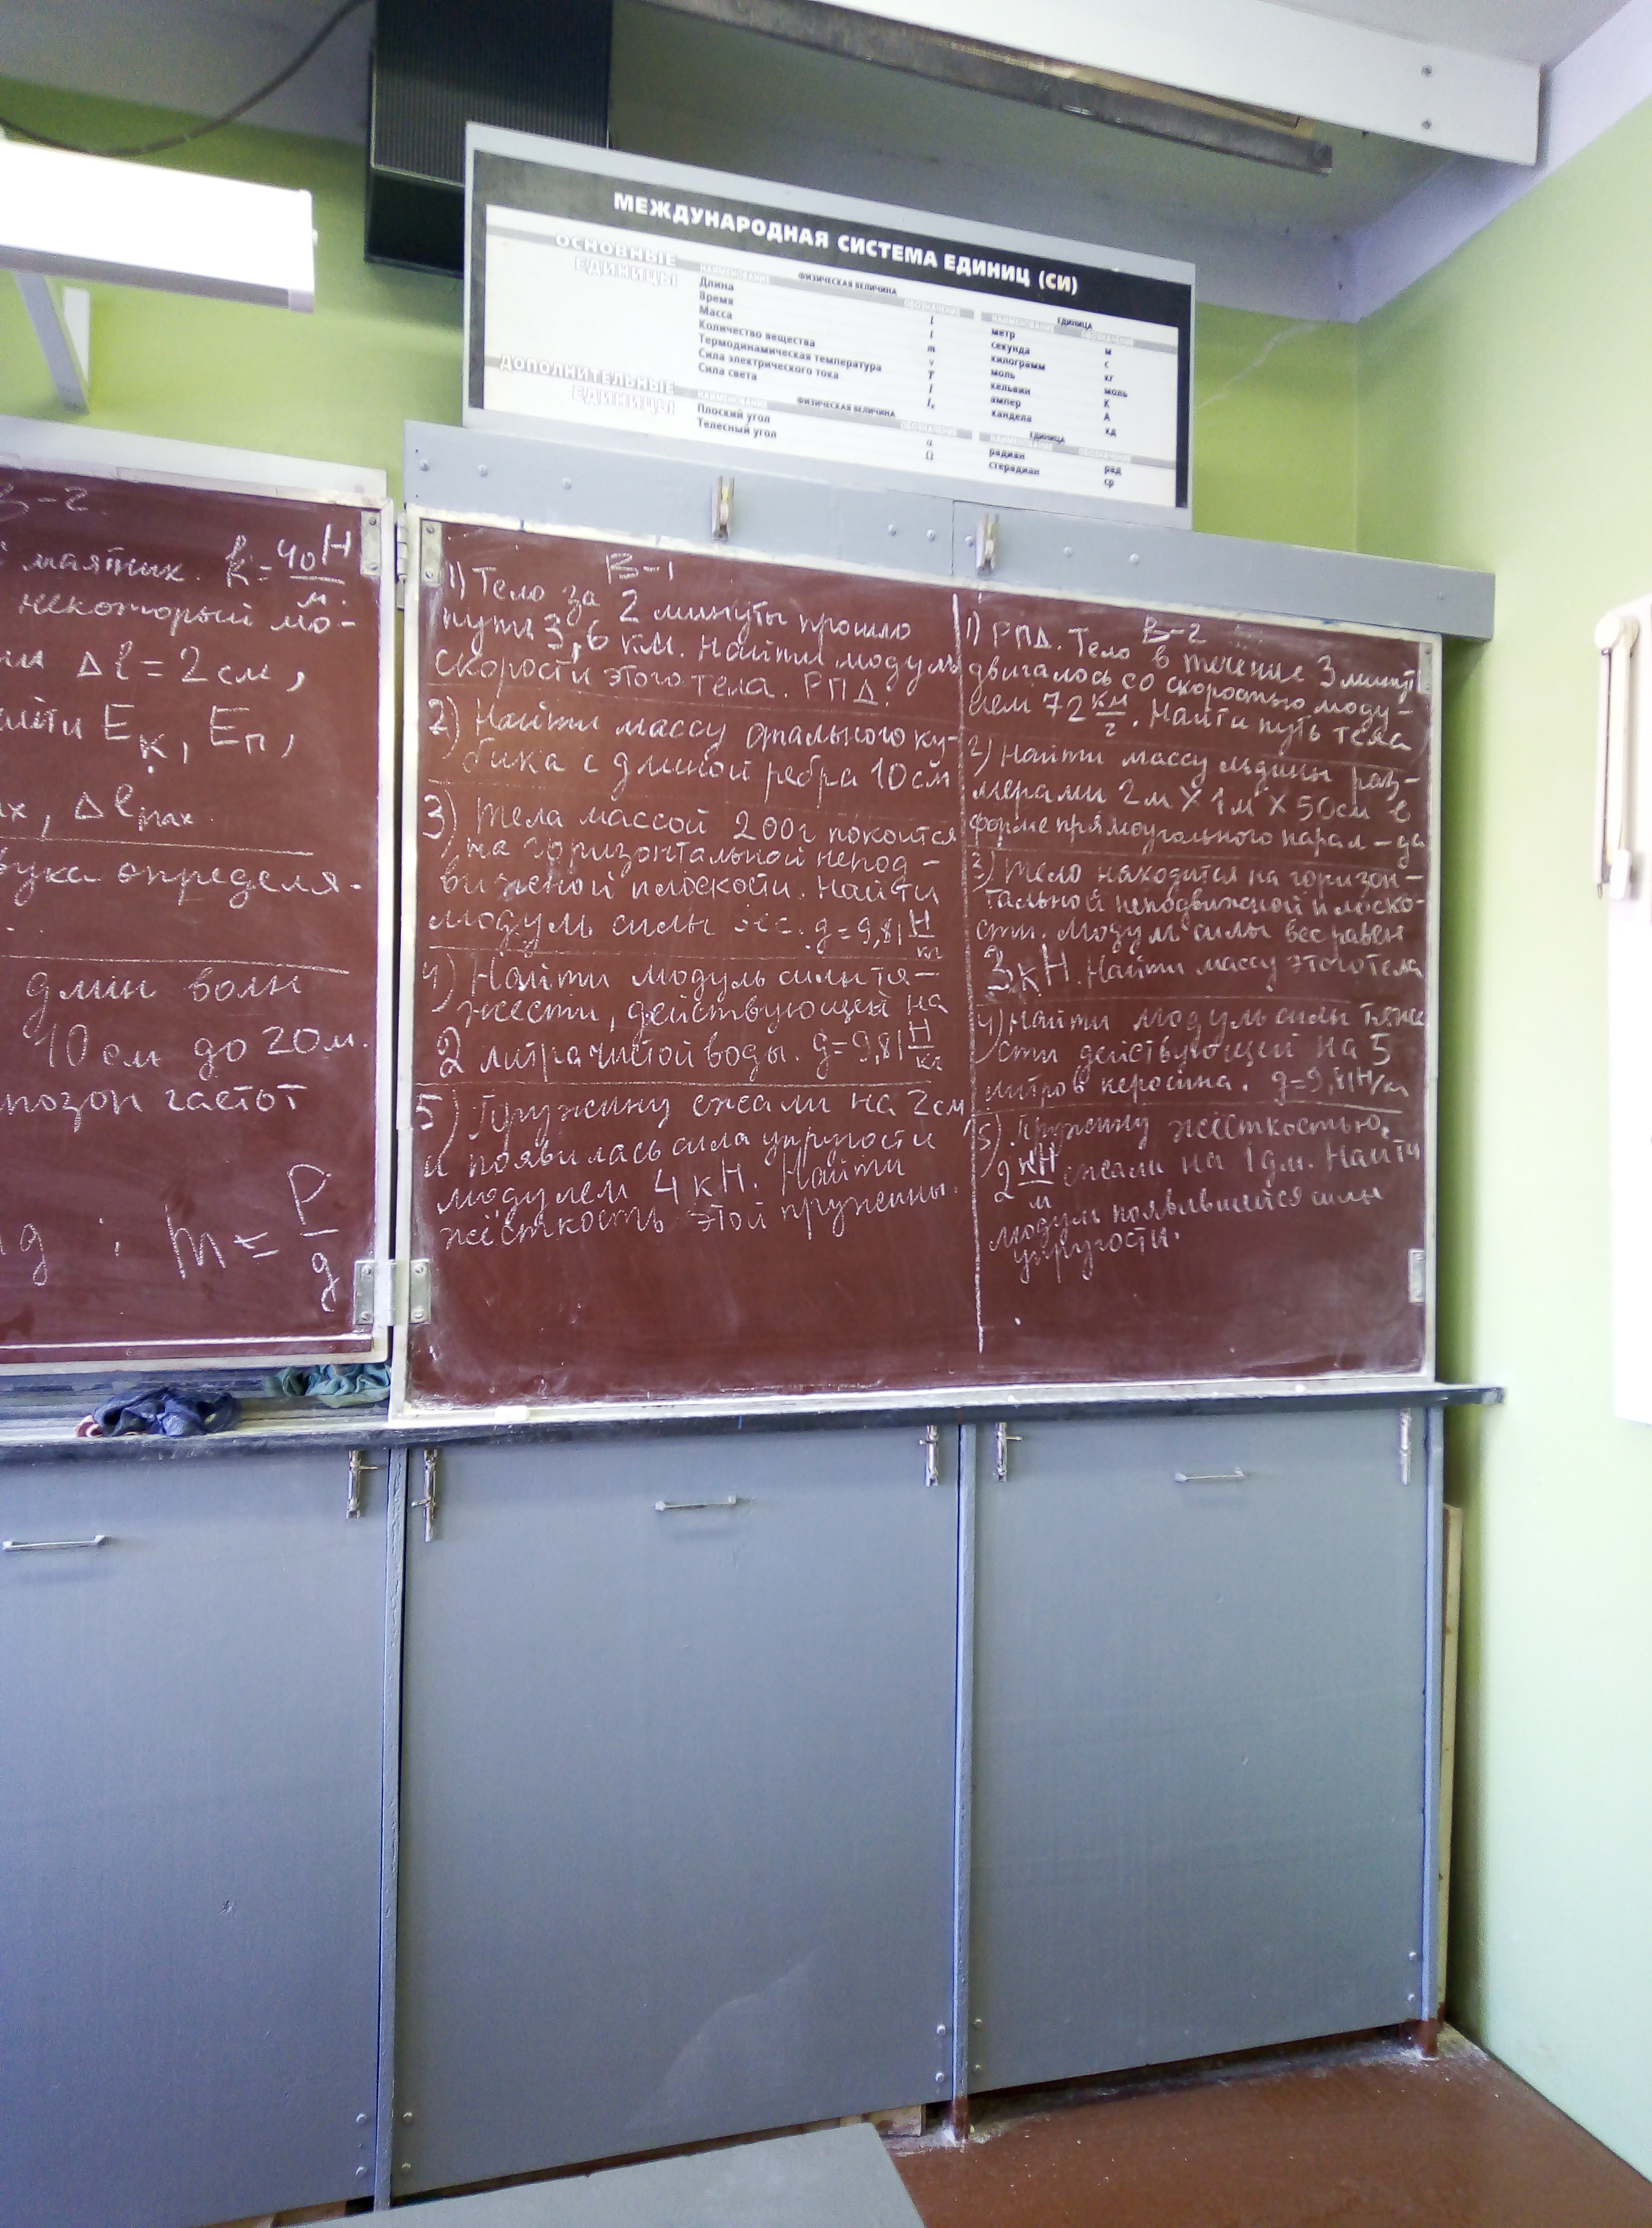 МЕЖДУНАРОДНАЯ СИСТЕМА ЕДИНИЦ (СИ)
ОСНОВНЫЕ ЕДИНИЦЫ
ФИЗИЧЕСКАЯ ВЕЛИЧИНА ЕДИНИЦА
НАИМЕНОВАНИЕ ОБОЗНАЧЕНИЕ НАИМЕНОВАНИЕ ОБОЗНАЧЕНИЕ
Длина l метр м
Время t секунда с
Масса m килограмм кг
Количество вещества ν моль моль
Термодинамическая температура T кельвин К
Сила электрического тока I ампер А
Сила света кандела кд
ДОПОЛНИТЕЛЬНЫЕ ЕДИНИЦЫ
ФИЗИЧЕСКАЯ ВЕЛИЧИНА ЕДИНИЦА
НАИМЕНОВАНИЕ ОБОЗНАЧЕНИЕ НАИМЕНОВАНИЕ ОБОЗНАЧЕНИЕ
Плоский угол α радиан рад
Телесный угол Ω стерадиан ср
В-2
маятник. k = 40 Н/м.
некоторый мо-
Δl = 2 см,
Eк, Eп,
Δlmax.
определя-
длин волн
10 см до 20 м.
частот
g ; m = P/g
В-1
1) Тело за 2 минуты прошло
путь 3,6 км. Найти модуль
скорости этого тела. РПД.
2) Найти массу стального ку-
бика с длиной ребра 10 см
3) Тела массой 200г покоится
на горизонтальной непод-
вижной плоскости. Найти
модуль силы вес. g = 9,81 Н/кг
4) Найти модуль силы тя-
жести, действующей на
2 литра чистой воды. g = 9,81 Н/кг
5) Пружину сжали на 2 см
и появилась сила упругости
модулем 4 кН. Найти
жёсткость этой пружины.
В-2
1) РПД. Тело в течение 3 минут
двигалось со скоростью моду-
лем 72 км/г. Найти путь тела
2) Найти массу льдины раз-
мерами 2м X 1м X 50см в
форме прямоугольного парал-да
3) Тело находится на горизон-
тальной неподвижной плоско-
сти. Модуль силы вес равен
3 кН. Найти массу этого тела
4) Найти модуль силы тяже
сти действующей на 5
литров керосина. g = 9,81 Н/кг
5) Пружину жёсткостью
2 кН/м сжали на 1 дм. Найти
модуль появившейся силы
упругости.